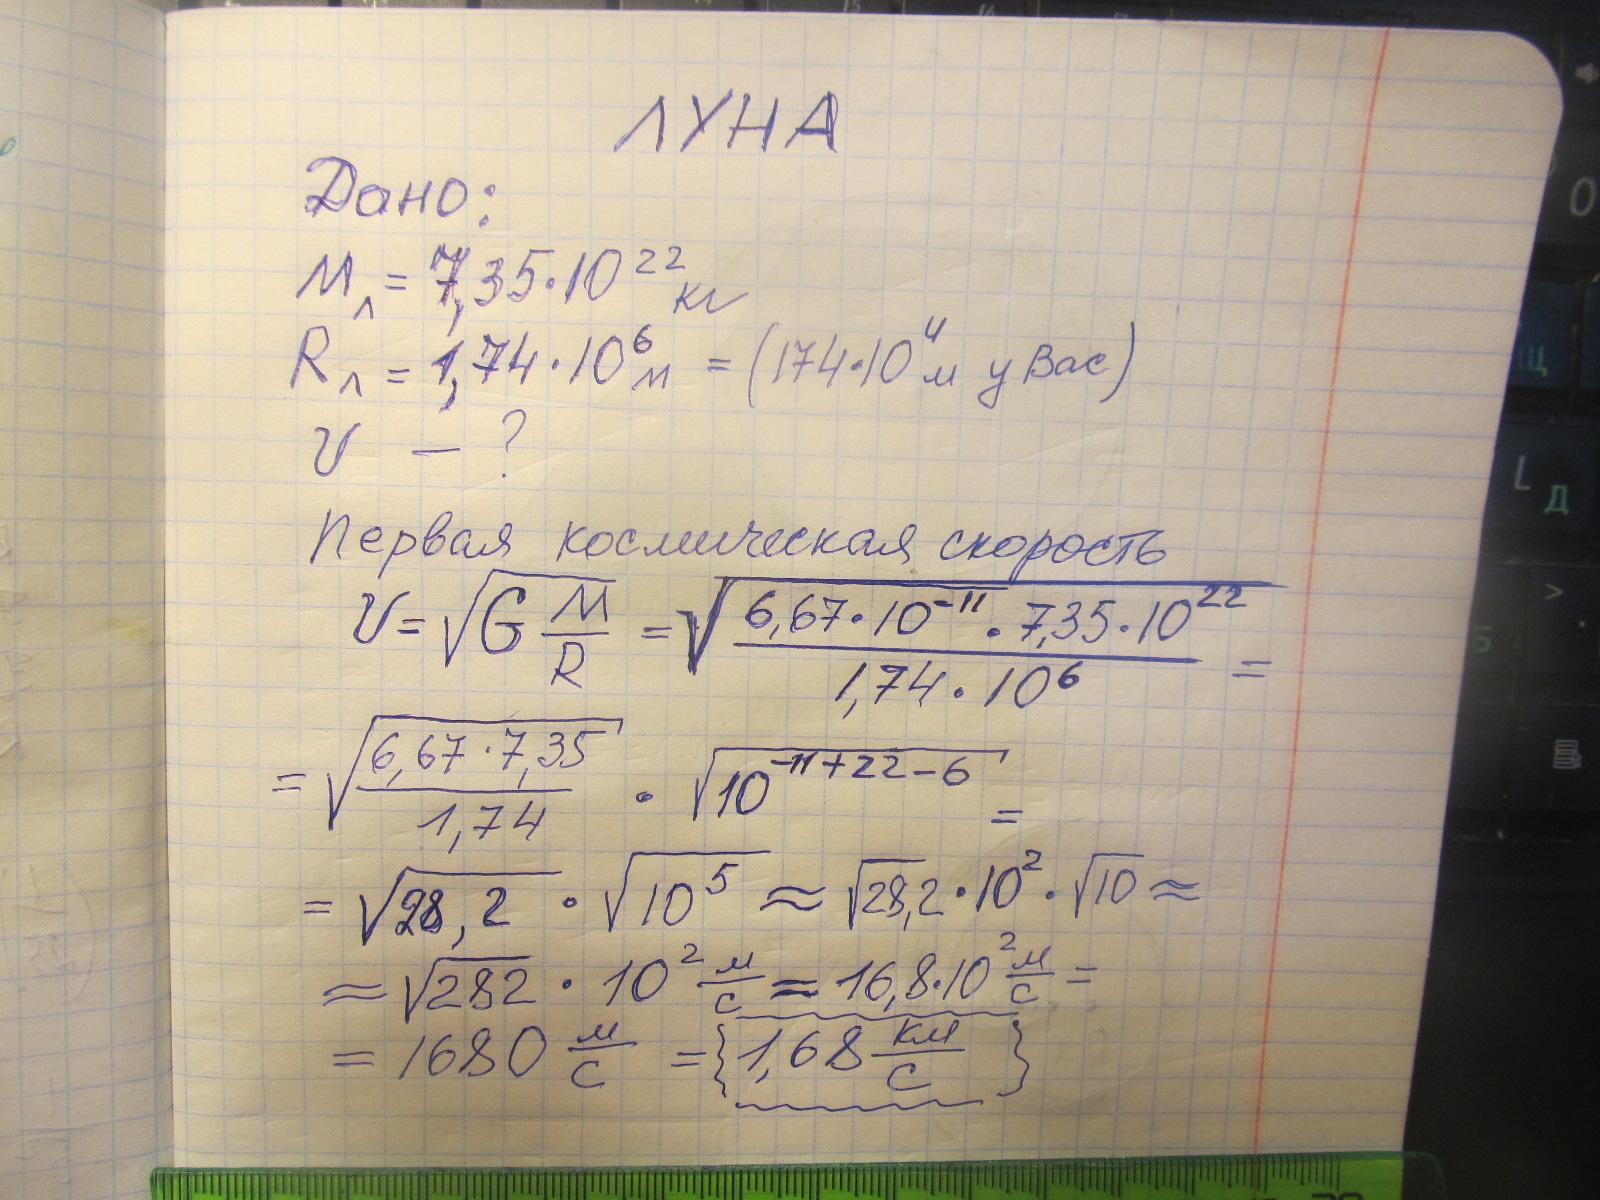 ЛУНА
Дано:
Mл = 7,35·10²² кг
Rл = 1,74·10⁶ м = (174·10⁴ м у Вас)
v — ?
Первая космическая скорость
v = √(G M/R) = √((6,67·10⁻¹¹ · 7,35·10²²)/(1,74·10⁶)) =
= √((6,67·7,35)/(1,74)) · √(10⁻¹¹⁺²²⁻⁶) =
= √(28,2) · √(10⁵) ≈ √(28,2)·10²·√10 ≈
≈ √282 · 10² м/с ≈ 16,8·10² м/с =
= 1680 м/с = {1,68 км/с}